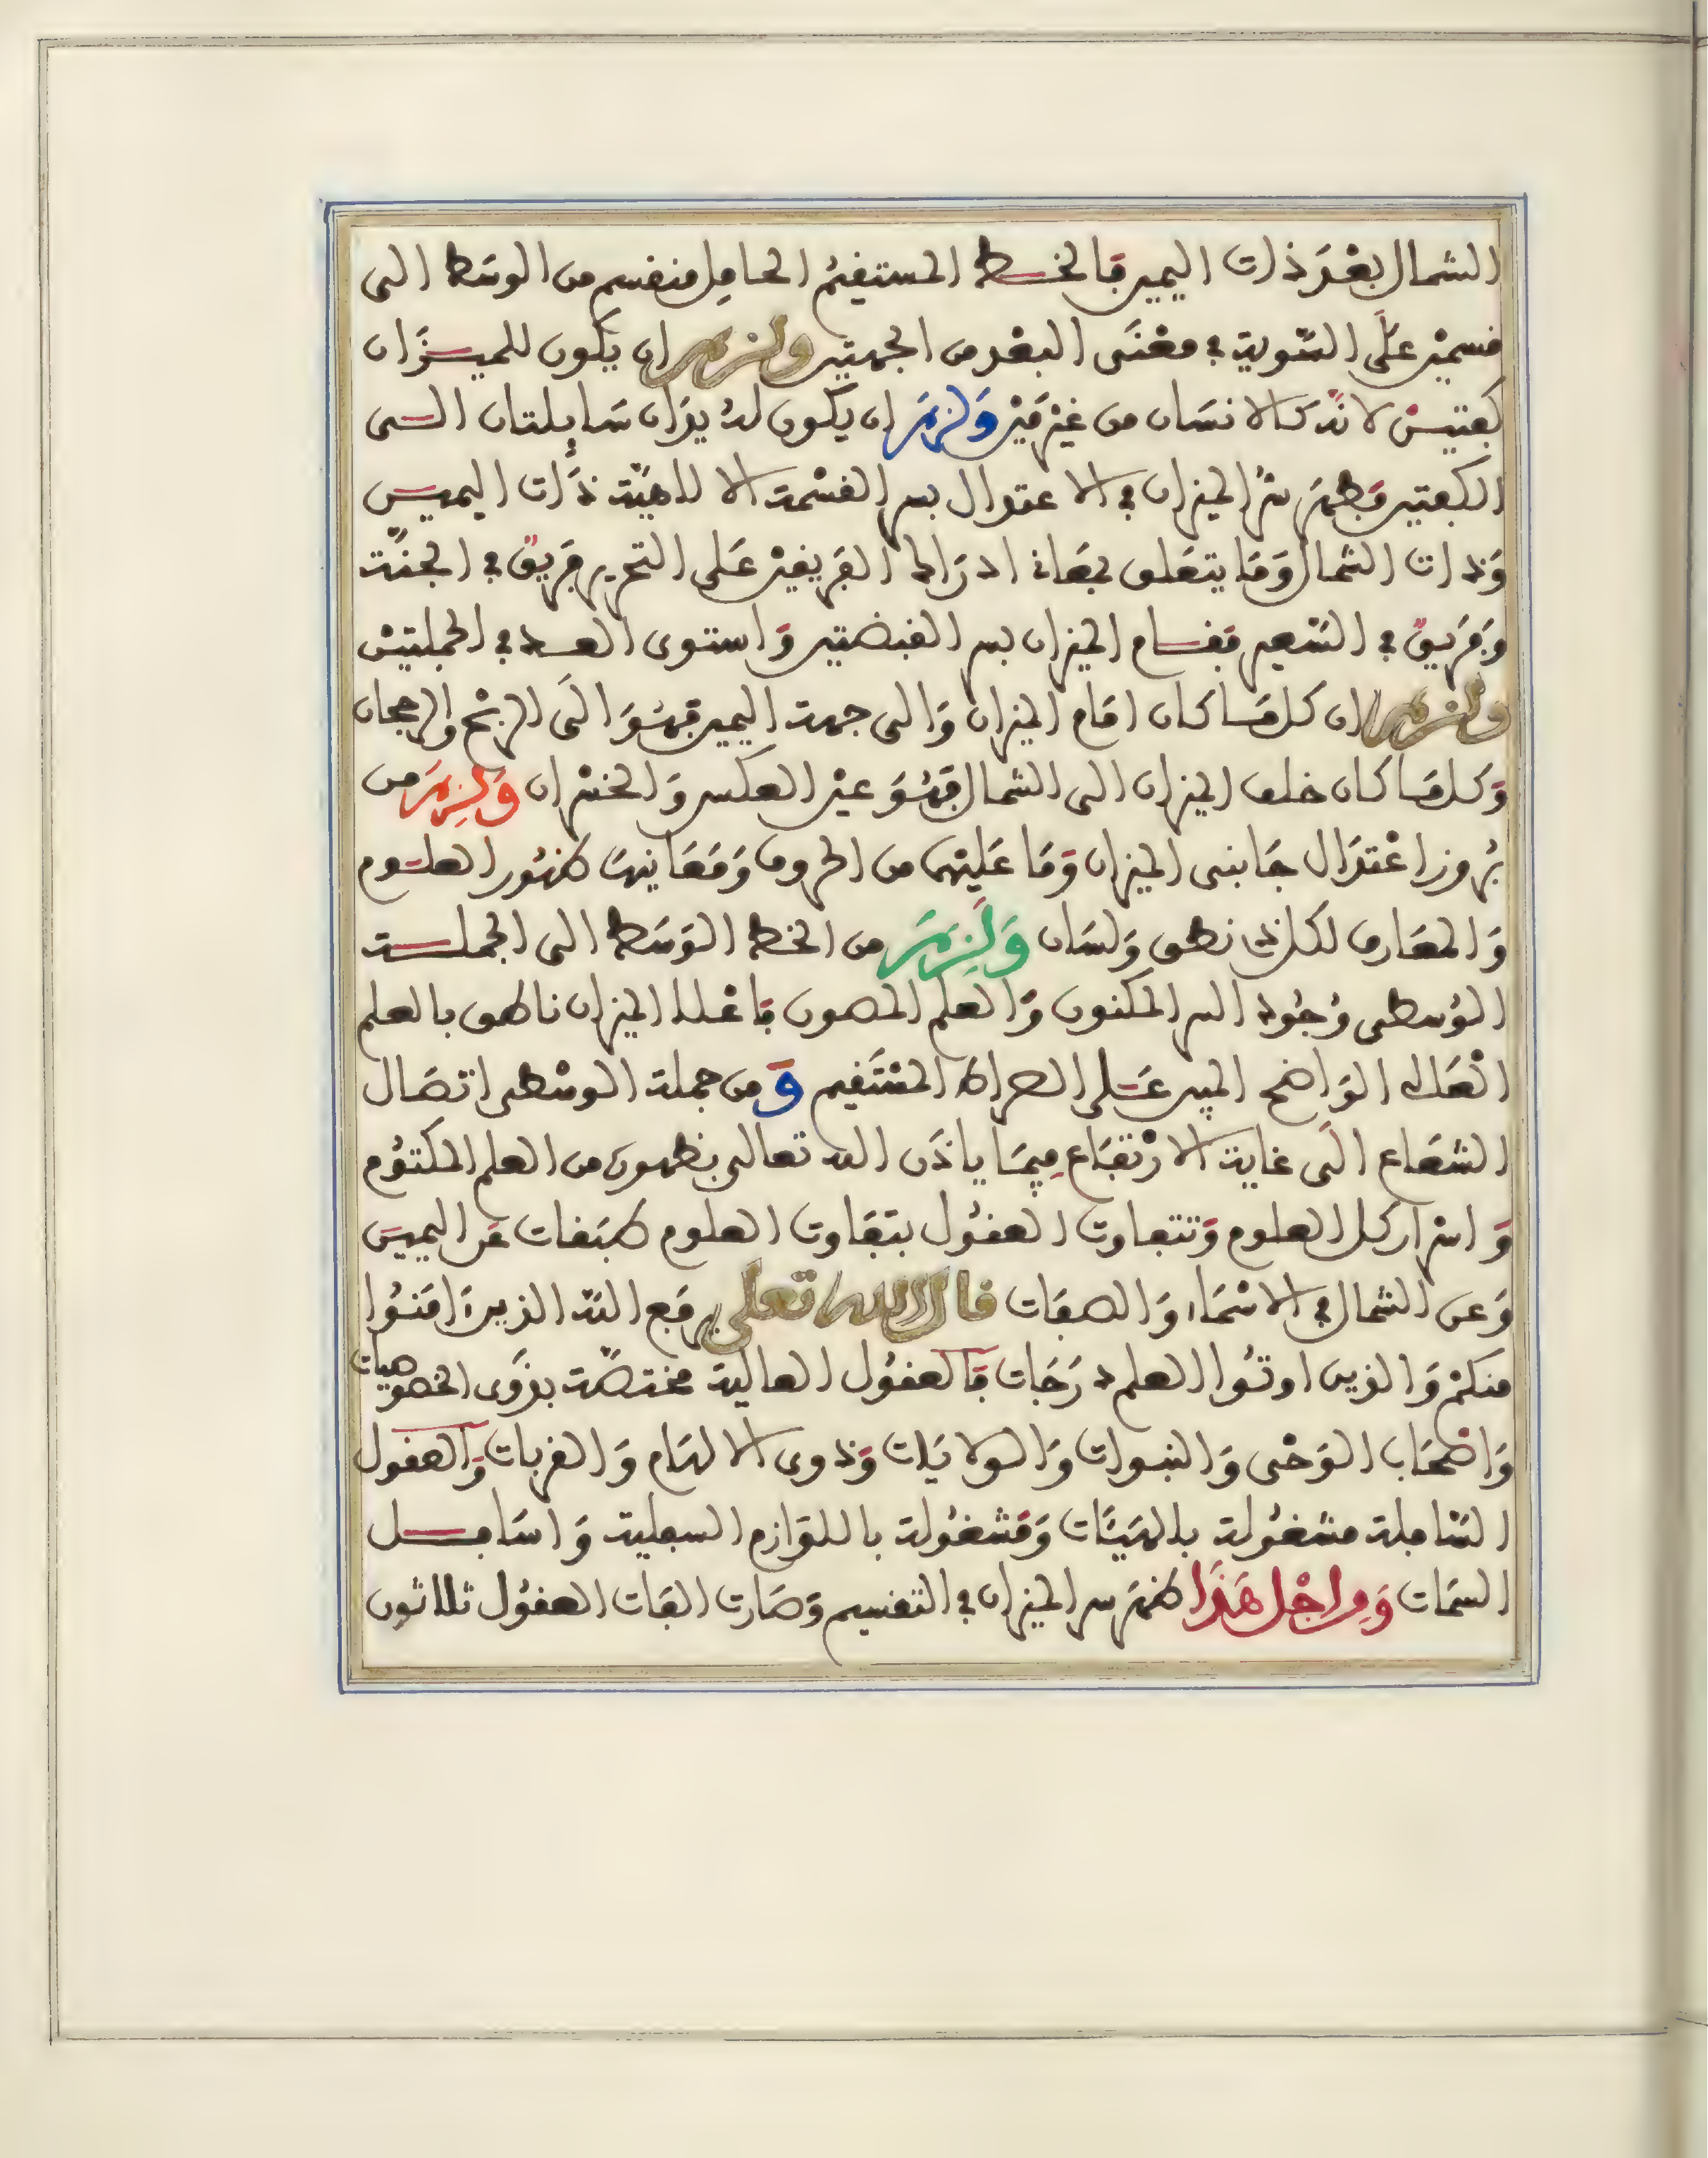 الشمال بعْدَ ذات اليمين فالخط المستقيمُ الحامِل منقسم من الوسَط الى
قسمين علَى السّوية في معْنَى البعْد من الجهتين ولزم ان يكون للميزَان
كفتيْن لانّه كالانسَان من غيْر مَيْن وَلزمَ ان يكون لهُ يدَان سَابلتان الى
الكفتين فظهرَ سرُّ الميزان في الاعتدال بسر القسْمة الالاهيّة ذَات اليمين
وَذات الشمال وَمَا يتعَلق بمعَانى ادرَاك الفَريقيْن عَلى التحرير فريقٌ في الجنّة
وَفَريقٌ في السّعير فقام الميزان بسر القبضتين وَاستوى العدد في الجملتيْن
ولزم ان كل مَا كان امَام الميزان وَالى جهة اليمين فهُوَ الَى الربْح والرجحان
وَكل مَا كان خلف الميزان الى الشمال فهُوَ عيْن العكس وَالخسْران وَلزِمَ من
برُوز اعْتدَال جَانبى الميزان وَمَا عَليْهما من الحروف وَمَعَانيهَا ظهُور العلوم
وَالمعَارف لكل ذى نطق وَلسَان وَلَزِمَ من الخط الوَسَط الى الجملة
الوُسطى وُجُود السر المكنون وَالعلم المصون فاعْلا الميزان ناطق بالعلم
العَال الوَاضح المبين عَلى الصراط المسْتَقيم وَ من جملة الوسْطى اتصَال
الشعَاع الَى غاية الارْتفَاع فِيمَا ياذَن الله تعالى بظهوره من العلم المكتوُم
وَاسْرار كل العلوم وَتتفاوت العقُول بتفَاوت العلوم طبَقات عَن اليمين
وَعن الشمال في الاسْمَاء وَالصفَات قال الله تعلى يرفَع اللهُ الذين ءَامَنُوا
منكمْ وَالذين اوتُوا العلم درَجَات فَالعقُول العالية مختصّة بذَوى الخصوصيات
وَاصْحَاب الوَحْى وَالنبوات وَالولايَات وَذوى الالهَام وَالقربات وَالعقول
السّافلة مشغُولة بالهَيئَات وَمَشغُولة باللوَازم السفلية وَاسَافل
السمَات وَمِن اجْل هَذَا ظهرَ سر الميزان في التقسيم وَصَارت الفَات العقُول ثلاثون